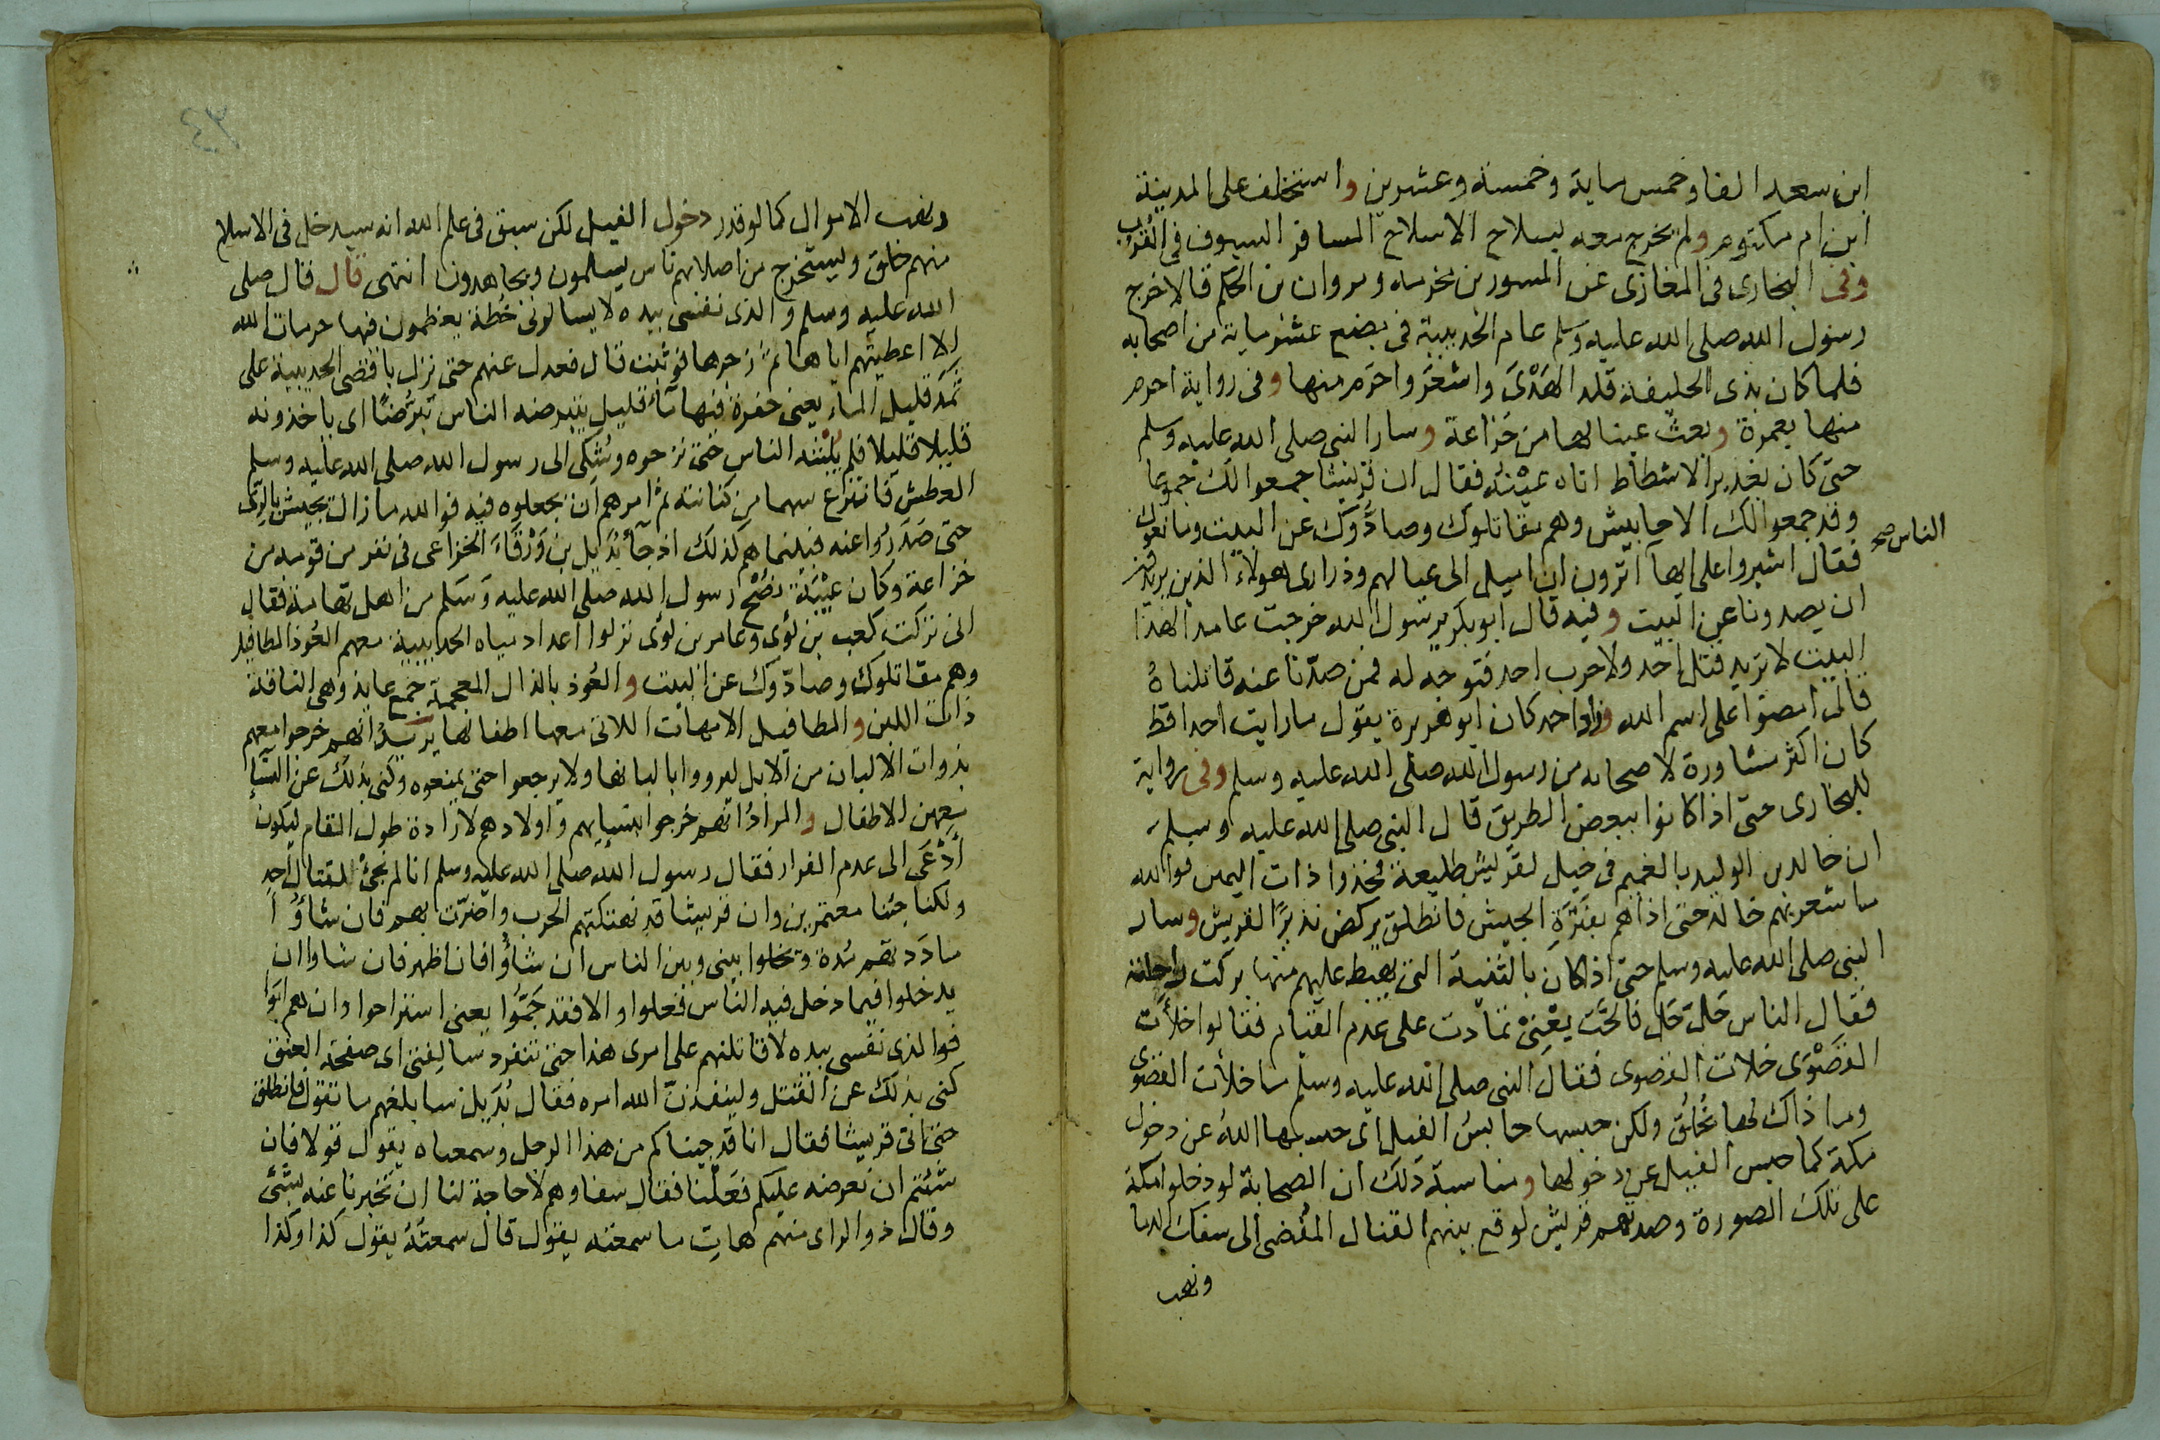 ابن سعد الفا وخمس ماية وخمسة وعشرين واستخلف على المدينة
ابن ام مكتوم ولم يخرج معه بسلاح الاسلاح المسافر السيوف في القرب
وفي البخارى في المغازى عن المسور بن مخرمه ومروان بن الحكم قالا خرج
رسول الله صلى الله عليه وسلم عام الحديبية في بضع عشر ماية من اصحابه
فلما كان بذى الحليفة قلد الهَدْىَ واشعَرَ واحرَم منها وفي رواية احرم
منها بعمرة وبعث عينا لها من خزاعة وسار النبي صلى الله عليه وسلم
حتى كان بغدير الاشطاط اتاه عَيْنهُ فقال ان قريشا جمعوا لك جموعا
وقد جمعوا لك الاحابيش وهم مقاتلوك وصادُّوك عن البيت ومانعوك
الناس صح
فقال اشيروا على ايها اترون ان اميل الى عيالهم وذرارى هولاء الذين يريدون
ان يصدونا عن البيت وفيه قال ابو بكر يرسول الله خرجت عامدا لهذا
البيت لا تريد قتل احد ولا حرب احد فتوجه له فمن صدّنا عنه قاتلناهُ
قال امضوا على اسم الله وزاد احمد كان ابو هريرة يقول ما رايت احدا قط
كان اكثر مشاورة لاصحابه من رسول الله صلى الله عليه وسلم وفي رواية
للبخارى حتى اذا كانوا ببعض الطريق قال النبي صلى الله عليه وسلم
ان خالد بن الوليد بالغميم في خيل لقريش طليعة فخذوا ذات اليمين فوالله
ما شعر بهم خالد حتى اذا هم بقَتَرَةِ الجيش فانطلق يركض نذيرًا لقريش وسار
النبي صلى الله عليه وسلم حتى اذا كان بالثنية التي يهبط عليهم منها بركت راحلته
فقال الناس حَلْ حَل فالحَّت يعْنِىْ تمادت على عدم القيام فقالوا خلأت
القَصْوَى خلات القصوى فقال النبي صلى الله عليه وسلم ما خلأت القصوى
وما ذاك لها بخُلُق ولكن حبسها حابسُ الفيل اى حبسها اللهُ عن دخول
مكة كما حبس الفيل عن دخولها ومناسبة ذلك ان الصحابة لو دخلوا مكة
على تلك الصورة وصدهم قريش لوقع بينهم القتال المُفضى الى سفك الدما
ونهب
ونهب الاموال كما لو قدر دخول الفيل لكن سبق في علم الله انه سيدخل في الاسلام
منهم خلق وليستخرج من اصلابهم ناس يسلمون ويجاهدون انتهى قال قال صلى
الله عليه وسلم والذى نفسى بيده لا يسالونى خُطة يعظمون فيها حرمات الله
الا اعطيتهم اياها ثم زجرها فوثبت قال فعدل عنهم حتى نزل باقصى الحديبية على
ثَمَد قليل الماء يعنى حفرة فيها ماء قليل يتبرضه الناس تبرُّضًا اى ياخذونه
قليلا قليلا فلم يُلبثه الناس حتى نزحوه وشُكى الى رسول الله صلى الله عليه وسلم
العطش فانتزع سهما من كنانته ثم امرهم ان يجعلوه فيه فوالله ما زالت يجيش بالرِّى
حتى صَدَرُوا عنه فبينما هم كذلك اذ جآء بُدَيل بن وَرْقَاءَ الخزاعى في نفر من قومه من
خزاعة وكان عَيْبَةَ نُصْحِ رسول الله صلى الله عليه وسَلم من اهل تهامة فقال
انى تركت كعب بن لؤى وعامر بن لوى نزلوا اعداد مياه الحديبية معهم العُوذ المطافيل
وهم مقاتلوك وصادّوك عن البيت والعُوذ بالذال المعجمة جمع عايذ وهى الناقة
ذات اللبن والمطافيل الامهات اللاتى معها اطفالها يريدُ انهم خرجوا معهم
بذوات الالبان من الابل ليرووا بالبانها ولا يرجعوا حتى يمنعوه وكنى بذلك عن النسآء
معهن الاطفال والمرادُ انهم خرجوا بنسايهم واولادهم لارادة طول المقام ليكون
أدْعَى الى عدم الفرار فقال رسول الله صلى الله عليه وسلم انا لم نجئ لقتال احد
ولكنا جئنا معتمرين وان قريشا قد نهكتهم الحرب واضرّت بهم فان شاؤُا
مادَدتهم مُدة ويخلوا بينى وبين الناس ان شاؤا فان اظهر فان شاوا ان
يدخلوا فيما دخل فيه الناس فعلوا والا فقد جَمُّوا يعنى استراحوا وان هم ابَوا
فوالذى نفسى بيده لاقاتلنهم على امرى هذا حتى تنفرد سالفتى اى صفحة العنق
كنى بذلك عن القتل ولينفذنّ الله امره فقال بُدَيل سابلغهم ما تقول فانطلق
حتى اتى قريشا فقال انا قد جيناكم من هذا الرجل وسمعناه يقول قولا فان
شئتم ان نعرضه عليكم فعَلْنا فقال سفهاوهم لا حاجة لنا ان تخبرنا عنه بشَىْئ
وقال ذوا الراى منهم هاتِ ما سمعته يقول قال سمعتُهُ يقول كذا وكذا